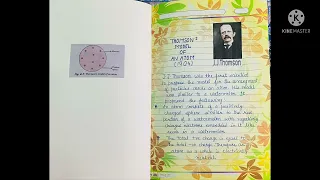 THOMSON'S
MODEL
OF
AN ATOM
(1904)
J.J.Thomson
J.J Thomson was the first scientist
to propose the model for the arrangement
of particles inside an atom. His model
was similar to a watermelon. It
proposed the following:-
An atom consists of a positively
charged sphere similar to the red
portion of a watermelon with negatively
charged electrons embedded in it like
seeds in a watermelon.
The total -ve charge is equal to
the total +ve charge. Therefore an
atom as a whole is electrically
neutral.
MADE WITH
KINEMASTER